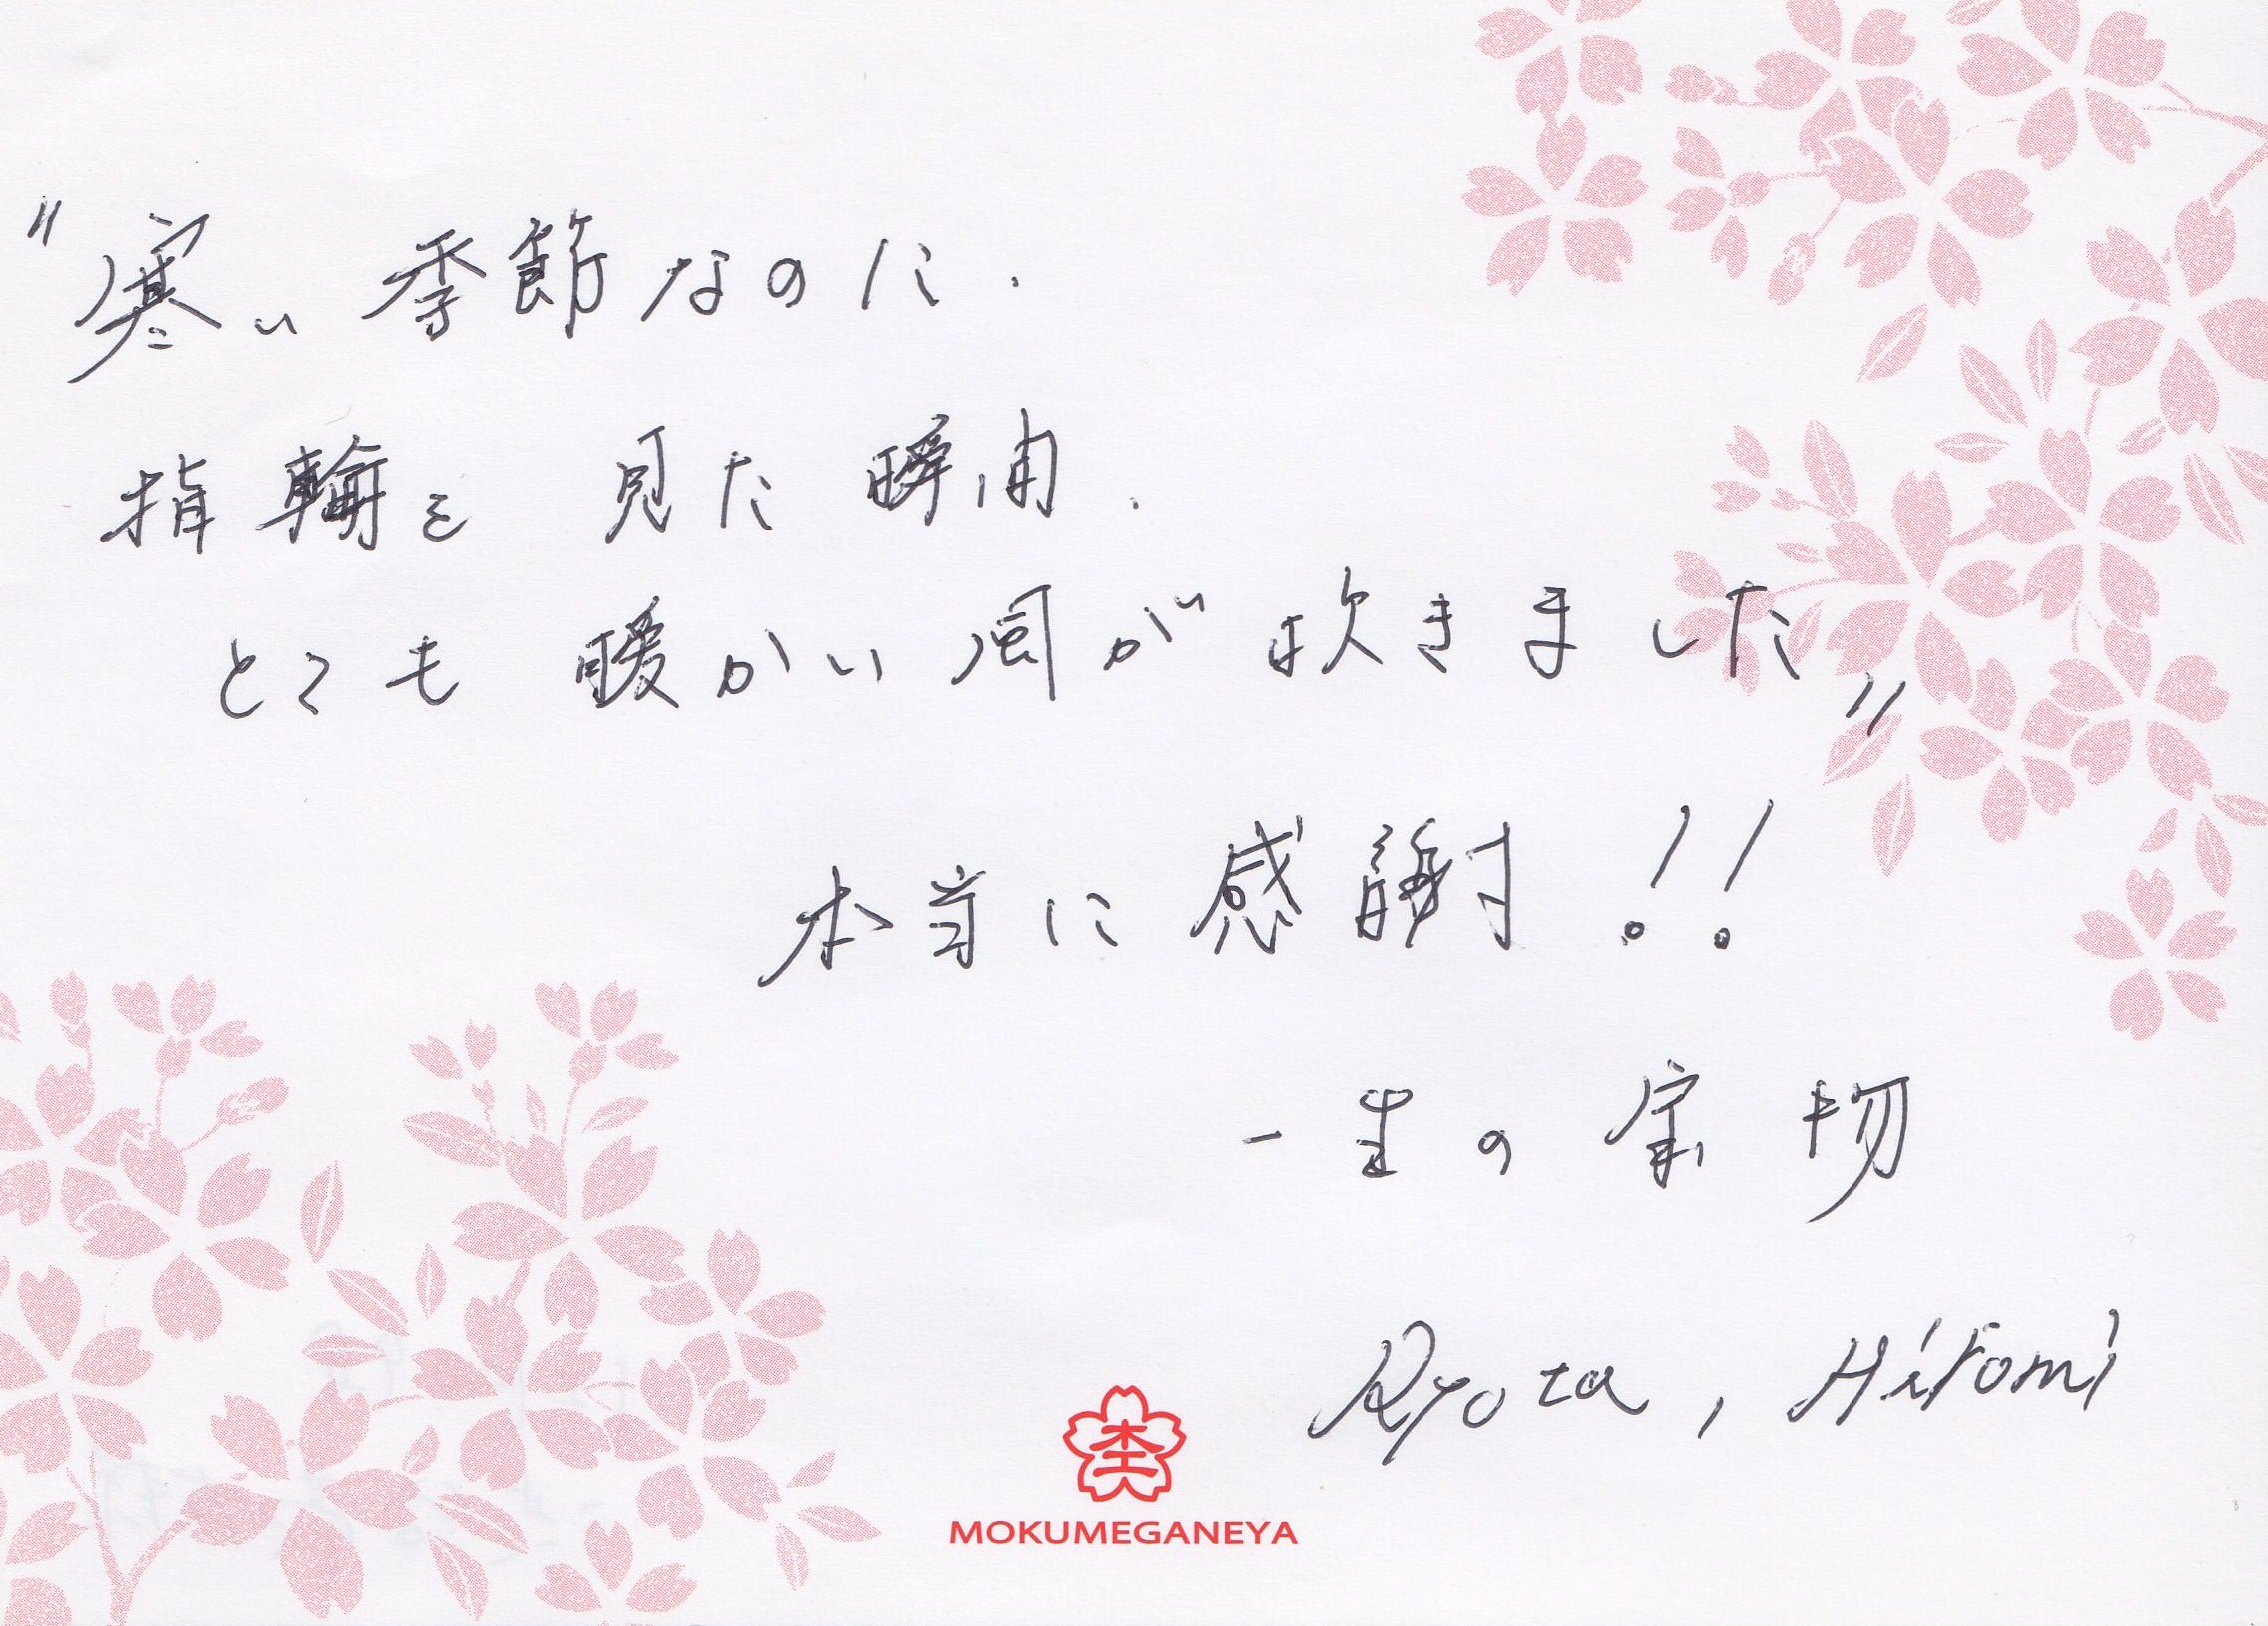 "寒い季節なのに.
指輪を見た瞬間.
とても暖かい風が吹きました"
本当に感謝!!
一生の宝物
Ryota, Hitomi
MOKUMEGANEYA